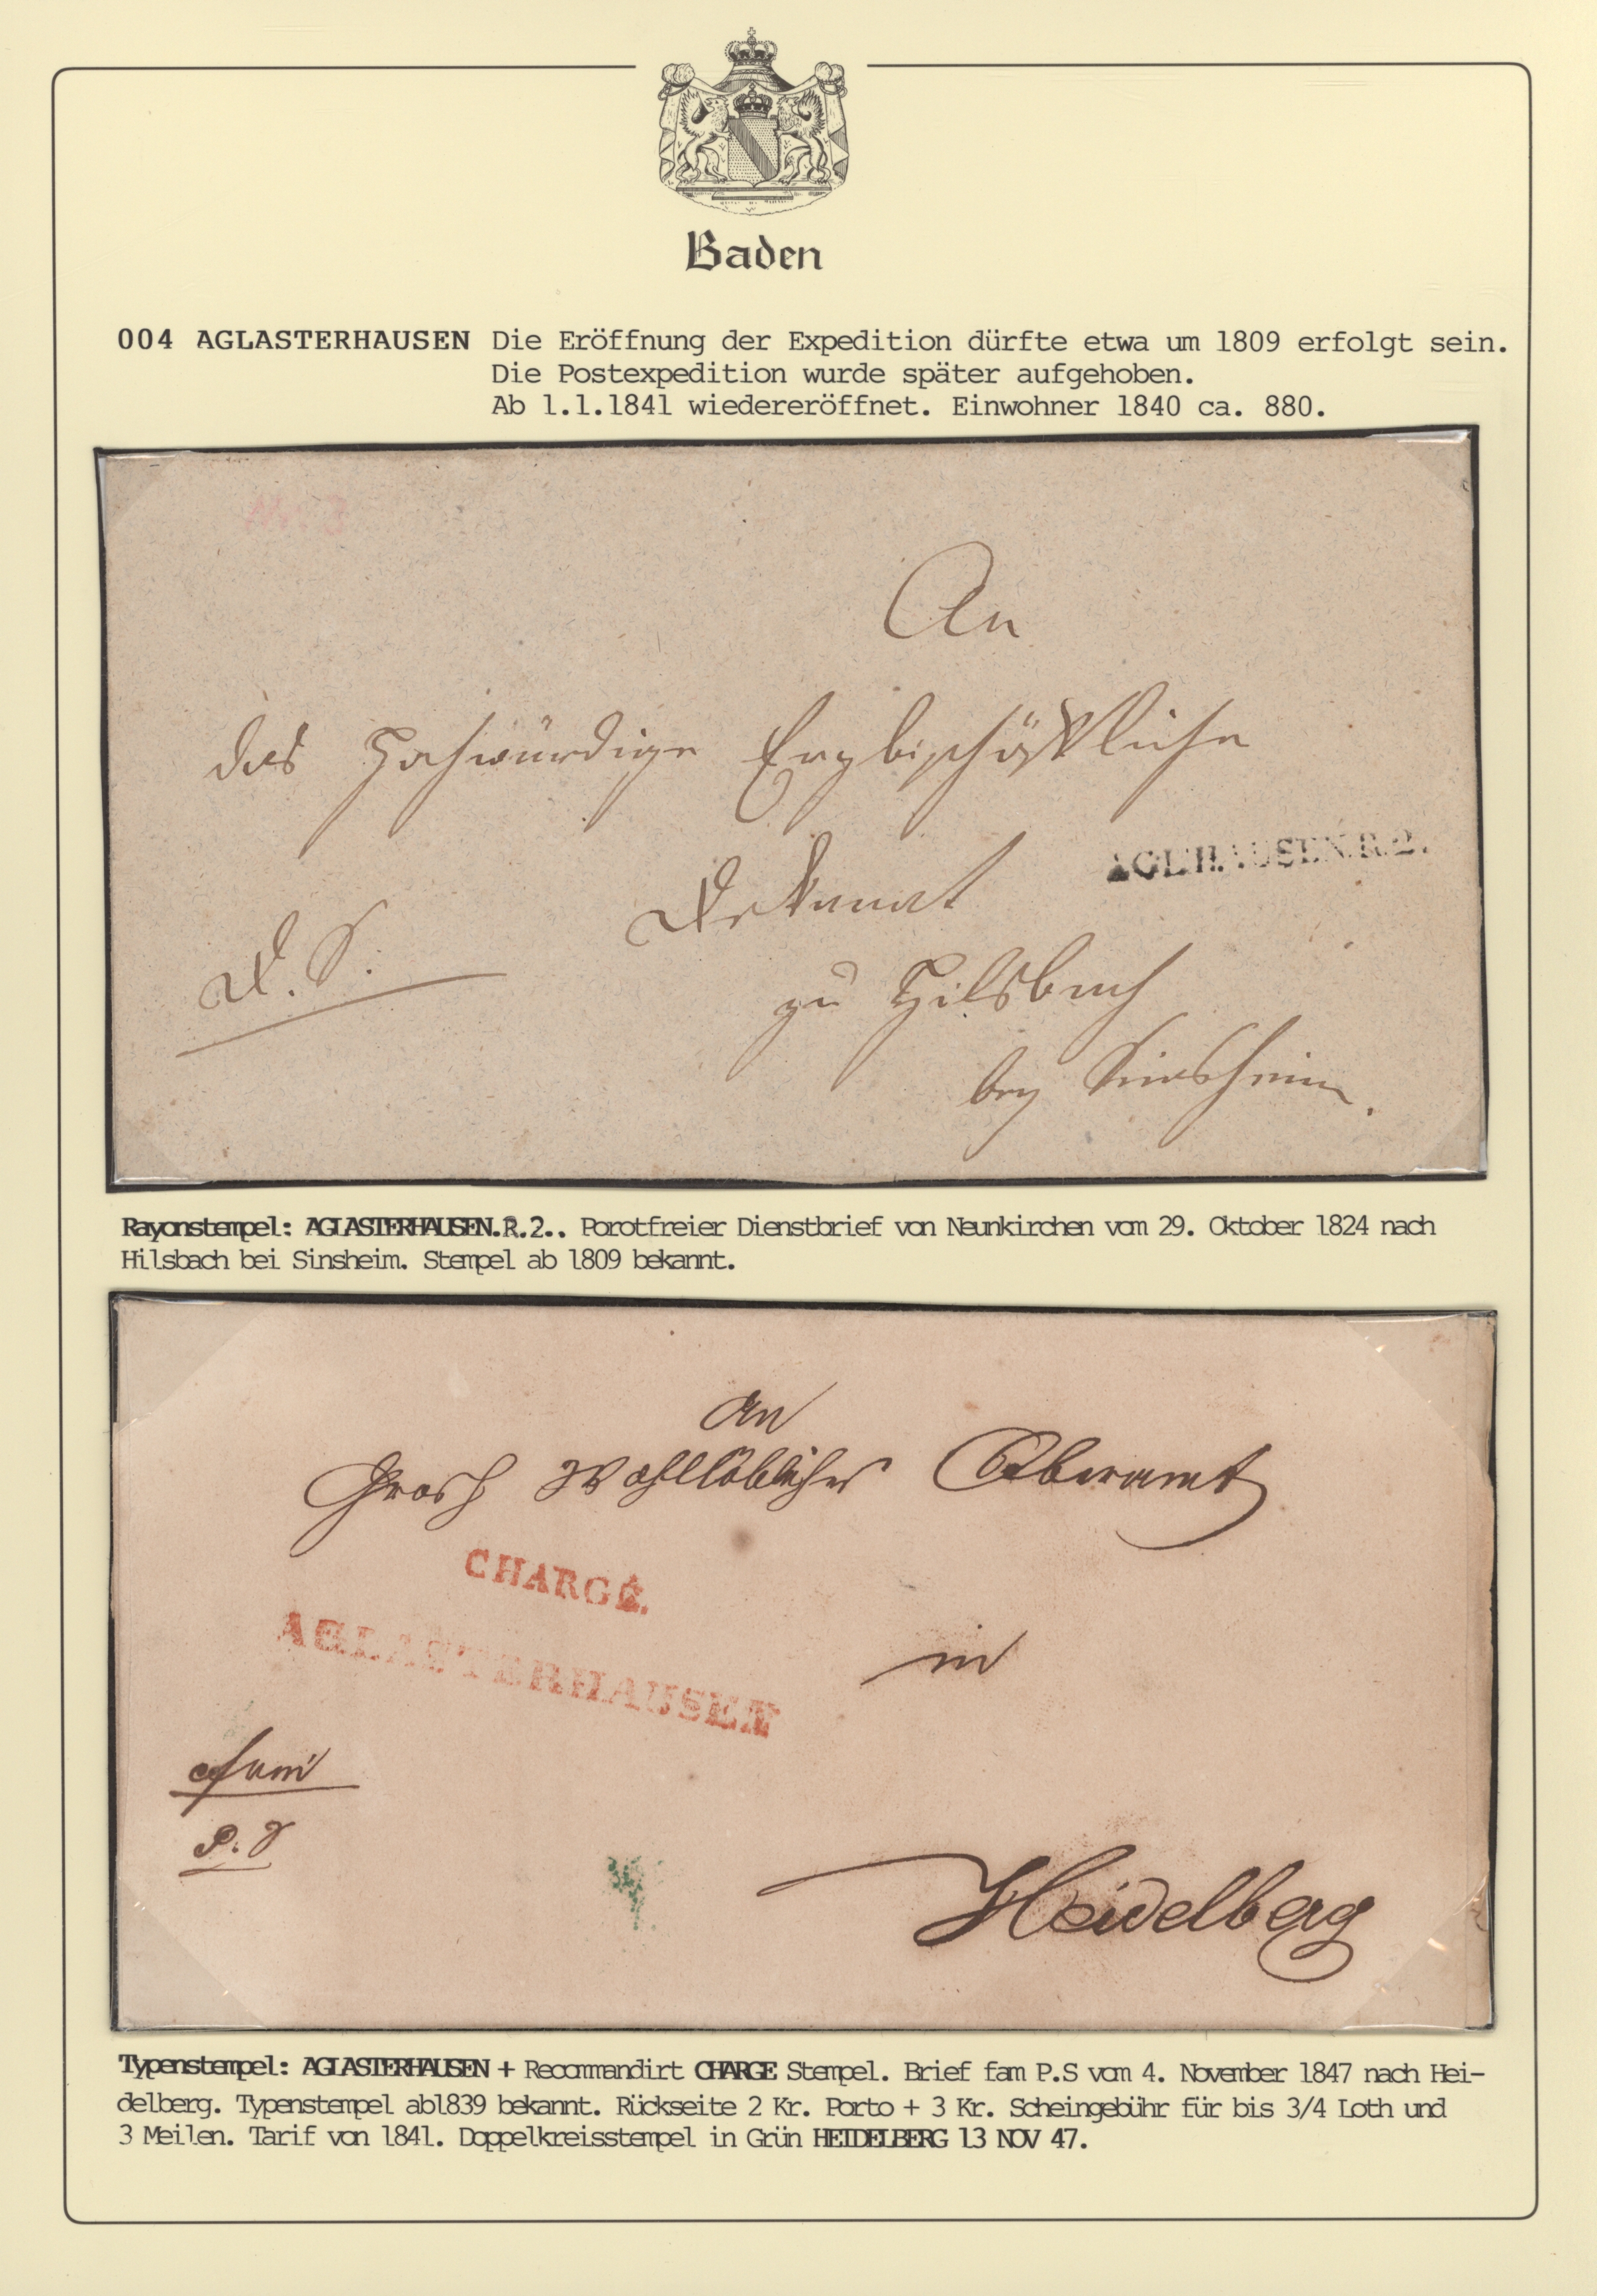 Baden
004 AGLASTERHAUSEN Die Eröffnung der Expedition dürfte etwa um 1809 erfolgt sein.
Die Postexpedition wurde später aufgehoben.
Ab 1.1.1841 wiedereröffnet. Einwohner 1840 ca. 880.
An
das Hochwürdige Erzbischöfliche
AGL.HAUSEN.R.2.
Dekanat
D. S.
zu Hilsbach
bey Sinsheim.
Rayonstempel: AGLASTERHAUSEN.R.2.. Porotfreier Dienstbrief von Neunkirchen vom 29. Oktober 1824 nach
Hilsbach bei Sinsheim. Stempel ab 1809 bekannt.
An
Grosh Wohllöbliches Oberamt
CHARGÉ.
AGLASTERHAUSEN
in
fam
P. S
Heidelberg
Typenstempel: AGLASTERHAUSEN + Recommandirt CHARGE Stempel. Brief fam P.S vom 4. November 1847 nach Hei-
delberg. Typenstempel ab1839 bekannt. Rückseite 2 Kr. Porto + 3 Kr. Scheingebühr für bis 3/4 Loth und
3 Meilen. Tarif von 1841. Doppelkreisstempel in Grün HEIDELBERG 13 NOV 47.